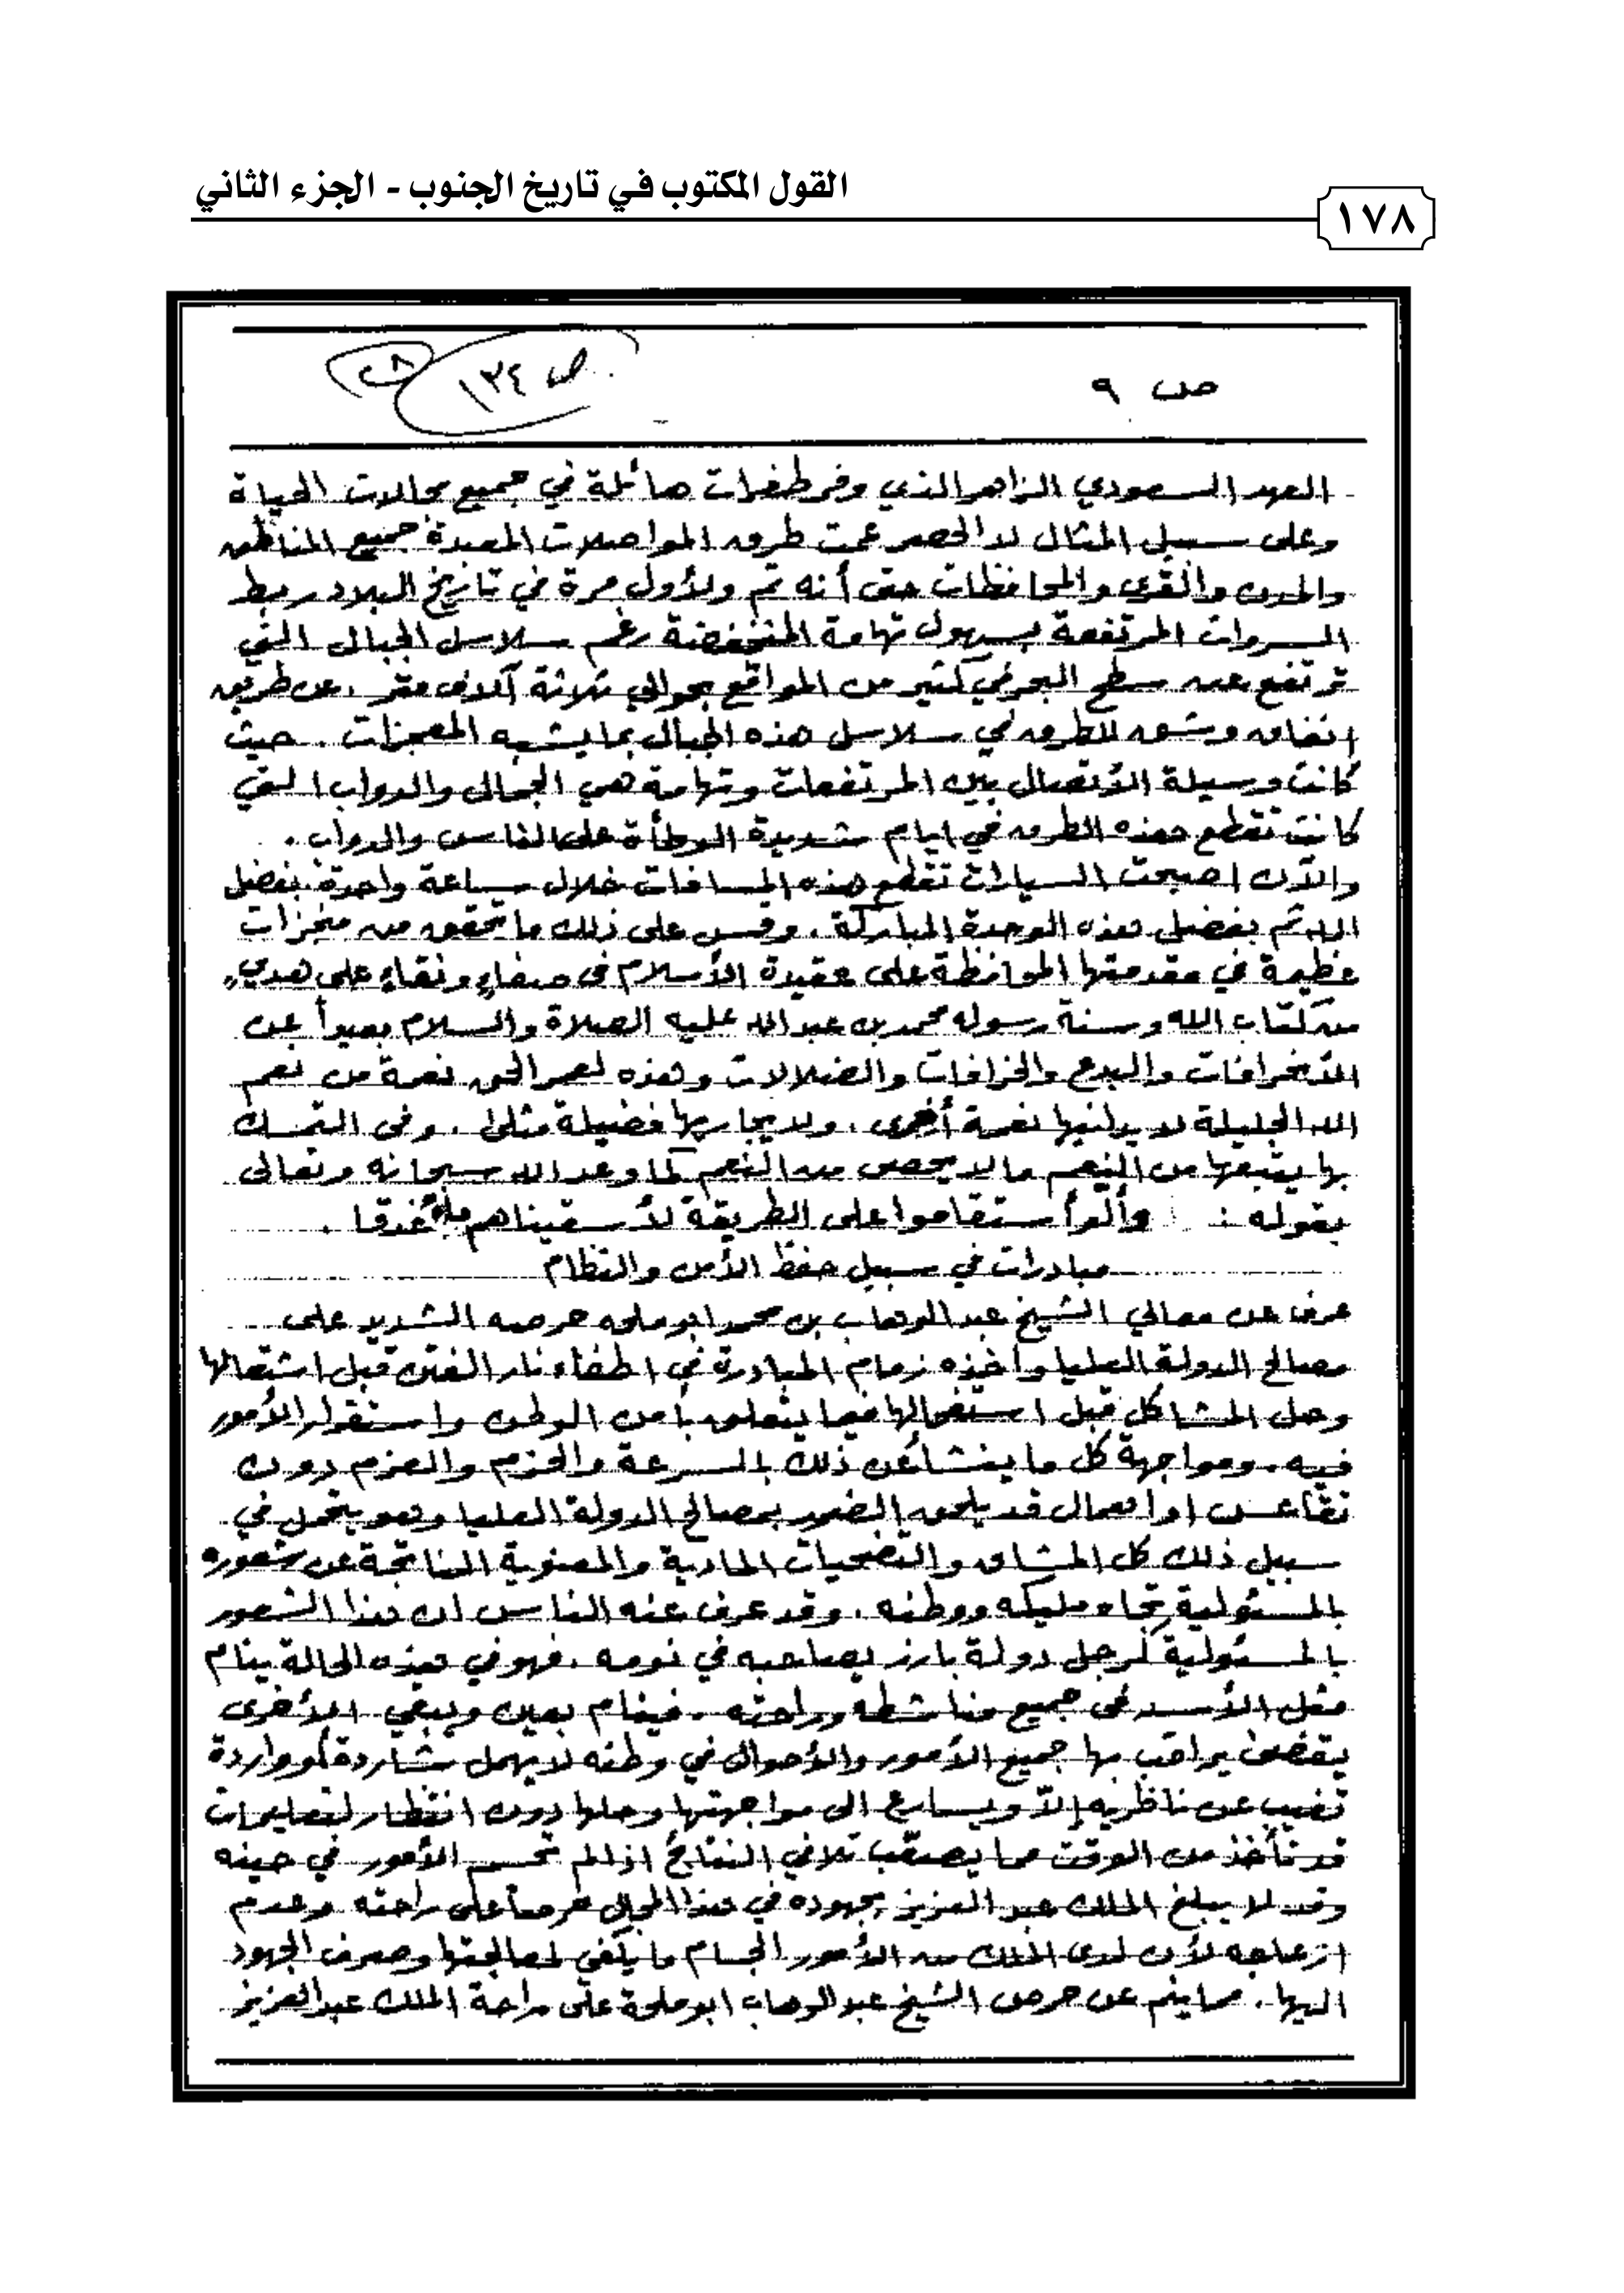 القول المكتوب في تاريخ الجنوب - الجزء الثاني
١٧٨
ص ٩
ص ١٣٤
العهد السعودي الزاهر الذي وفر طفرات هائلة في جميع مجالات الحياة
وعلى سبيل المثال لا الحصر عمت طرق المواصلات المعبدة جميع المناطق
والمدن والقرى والمحافظات حتى أنه تم ولأول مرة في تاريخ البلاد ربط
السروات المرتفعة بسهول تهامة المنخفضة رغم سلاسل الجبال التي
ترتفع عن سطح البحر في كثير من المواقع بحوالي ثلاثة آلاف متر . عن طريق
انفاق وشق للطرق في سلاسل هذه الجبال بما يشبه المعجزات . حيث
كانت وسيلة الأتصال بين المرتفعات وتهامة هي الجمال والدواب التي
كانت تقطع هذه الطرق في ايام شديدة الوطأة على الناس والدواب .
والآن اصبحت السيارات تقطع هذه المسافات خلال ساعة واحدة بفضل
الله ثم بفضل هذه الوحدة المباركة . وقس على ذلك ما تحقق من منجزات
عظيمة في مقدمتها المحافظة على عقيدة الأسلام في صفاءٍ ونقاءٍ على هدي
من كتاب الله وسنة رسوله محمد بن عبدالله عليه الصلاة والسلام بعيداً عن
الأنحرافات والبدع والخرافات والضلالات وهذه لعمر الحق نعمة من نعم
الله الجليلة لا يدانيها نعمة أخرى . ولا يجاريها فضيلة مثلى . وفي التمسك
بها يتبعها من النعم ما لا يحصى من النعم كما وعد الله سبحانه وتعالى
بقوله : وألو أستقاموا على الطريقة لأسقيناهم ماءً غدقا .
مبادرات في سبيل حفظ الأمن والنظام
عرف عن معالي الشيخ عبد الوهاب بن محمد ابو ملحه حرصه الشديد على
مصالح الدولة العليا وأخذه زمام المبادرة في اطفاء نار الفتن قبل اشتعالها
وحل المشاكل قبل استفحالها فيما يتعلق بأمن الوطن واستقرار الأمور
فيه . ومواجهة كل ما ينشأ عن ذلك بالسرعة والحزم والعزم دون
تقاعس او اهمال قد يلحق الضرر بمصالح الدولة العليا وهو يتحمل في
سبيل ذلك كل المشاق والتضحيات المادية والمعنوية الناتجة عن شعوره
بالمسئولية تجاه مليكه ووطنه . وقد عرف عنه الناس ان هذا الشعور
بالمسئولية كرجل دولة بارز يصاحبه في نومه . فهو في هذه الحالة ينام
مثل الأسد في جميع مناشطه وراحته . فينام بعين ويبقي الأخرى
يقضى يراقب بها جميع الأمور والأحوال في وطنه لا يهمل شاردة أو واردة
تغيب عن ناظريه إلاّ ويسارع الى مواجهتها وحلها دون انتظار لتعليمات
قد تأخذ من الوقت مما يصعّب تلافي النتائج اذا لم تحسم الأمور في حينه
وقد لا يبلغ الملك عبد العزيز بجهوده في هذا المجال حرصاً على راحته وعدم
ازعاجه لأن لدى الملك من الأمور الجسام ما يكفي لمعالجتها وصرف الجهود
اليها . مما ينم عن حرص الشيخ عبد الوهاب ابو ملحة على راحة الملك عبدالعزيز